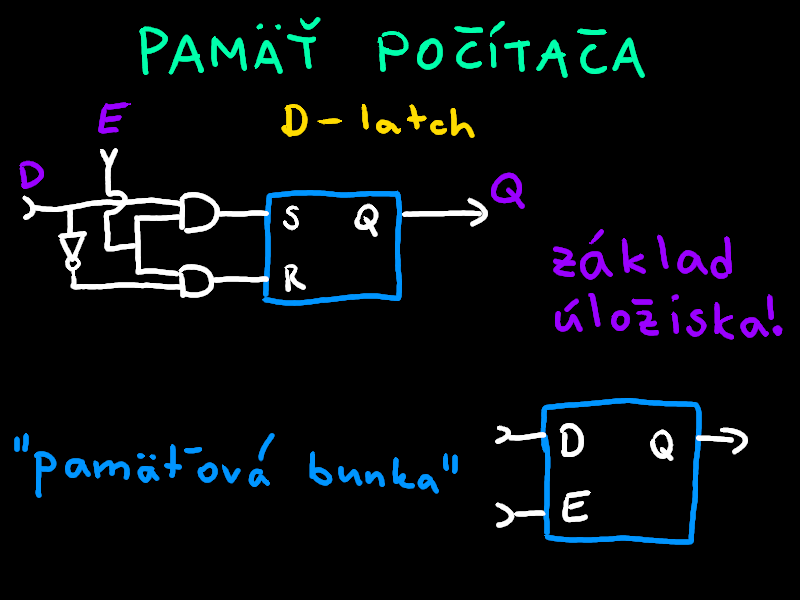 PAMÄŤ POČÍTAČA
D-latch
E
D
S Q
R
Q
základ
úložiska!
"pamäťová bunka"
D Q
E